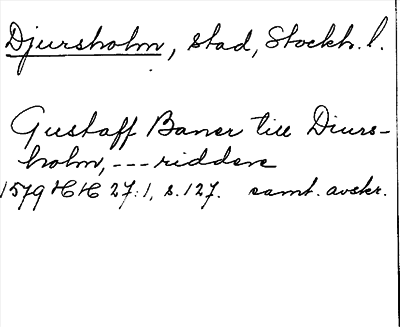 Djursholm, stad, Stockh. l.
Gustaff Baner till Diurs-
holm, --- riddere
1579 HH 27:1, s. 127. samt. avskr.